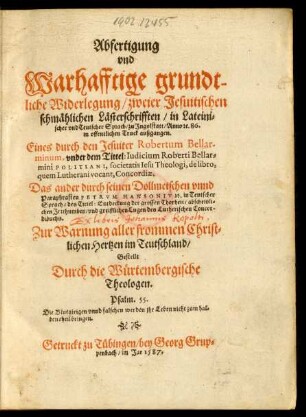 1902.13455
Abfertigung
vnd
Warhafftige grundt-
liche Widerlegung / zweier Jesuitischen
schmählichen Lästerschrifften / in Lateini-
scher vnd Teutscher Sprach / zu Ingolstatt / Anno etc. 86.
in offentlichen Truck außgangen.
Eines durch den Jesuiter Robertum Bellar-
minum, vnder dem Tittel: Iudicium Roberti Bellar-
mini POLITIANI, societatis Iesu Theologi, de libro,
quem Lutherani vocant, Concordiæ,
Das ander durch seinen Dollmetschen vnnd
Paraphrasten PETRVM HANSONIVM, in Teutscher
Sprach / den Titel: Entdeckung der grossen Thorheit / abschewlichen
Zur Warnung aller frommen Christ-
lichen Hertzen im Teutschland /
Gestellt
Durch die Würtembergische
Theologen.
Psalm. 55.
Die Blutgirigen vnnd falschen werden jhr Leben nicht zum hal-
ben theil bringen.
Getruckt zu Tübingen / bey Georg Grup-
penbach / im Jar 1587.